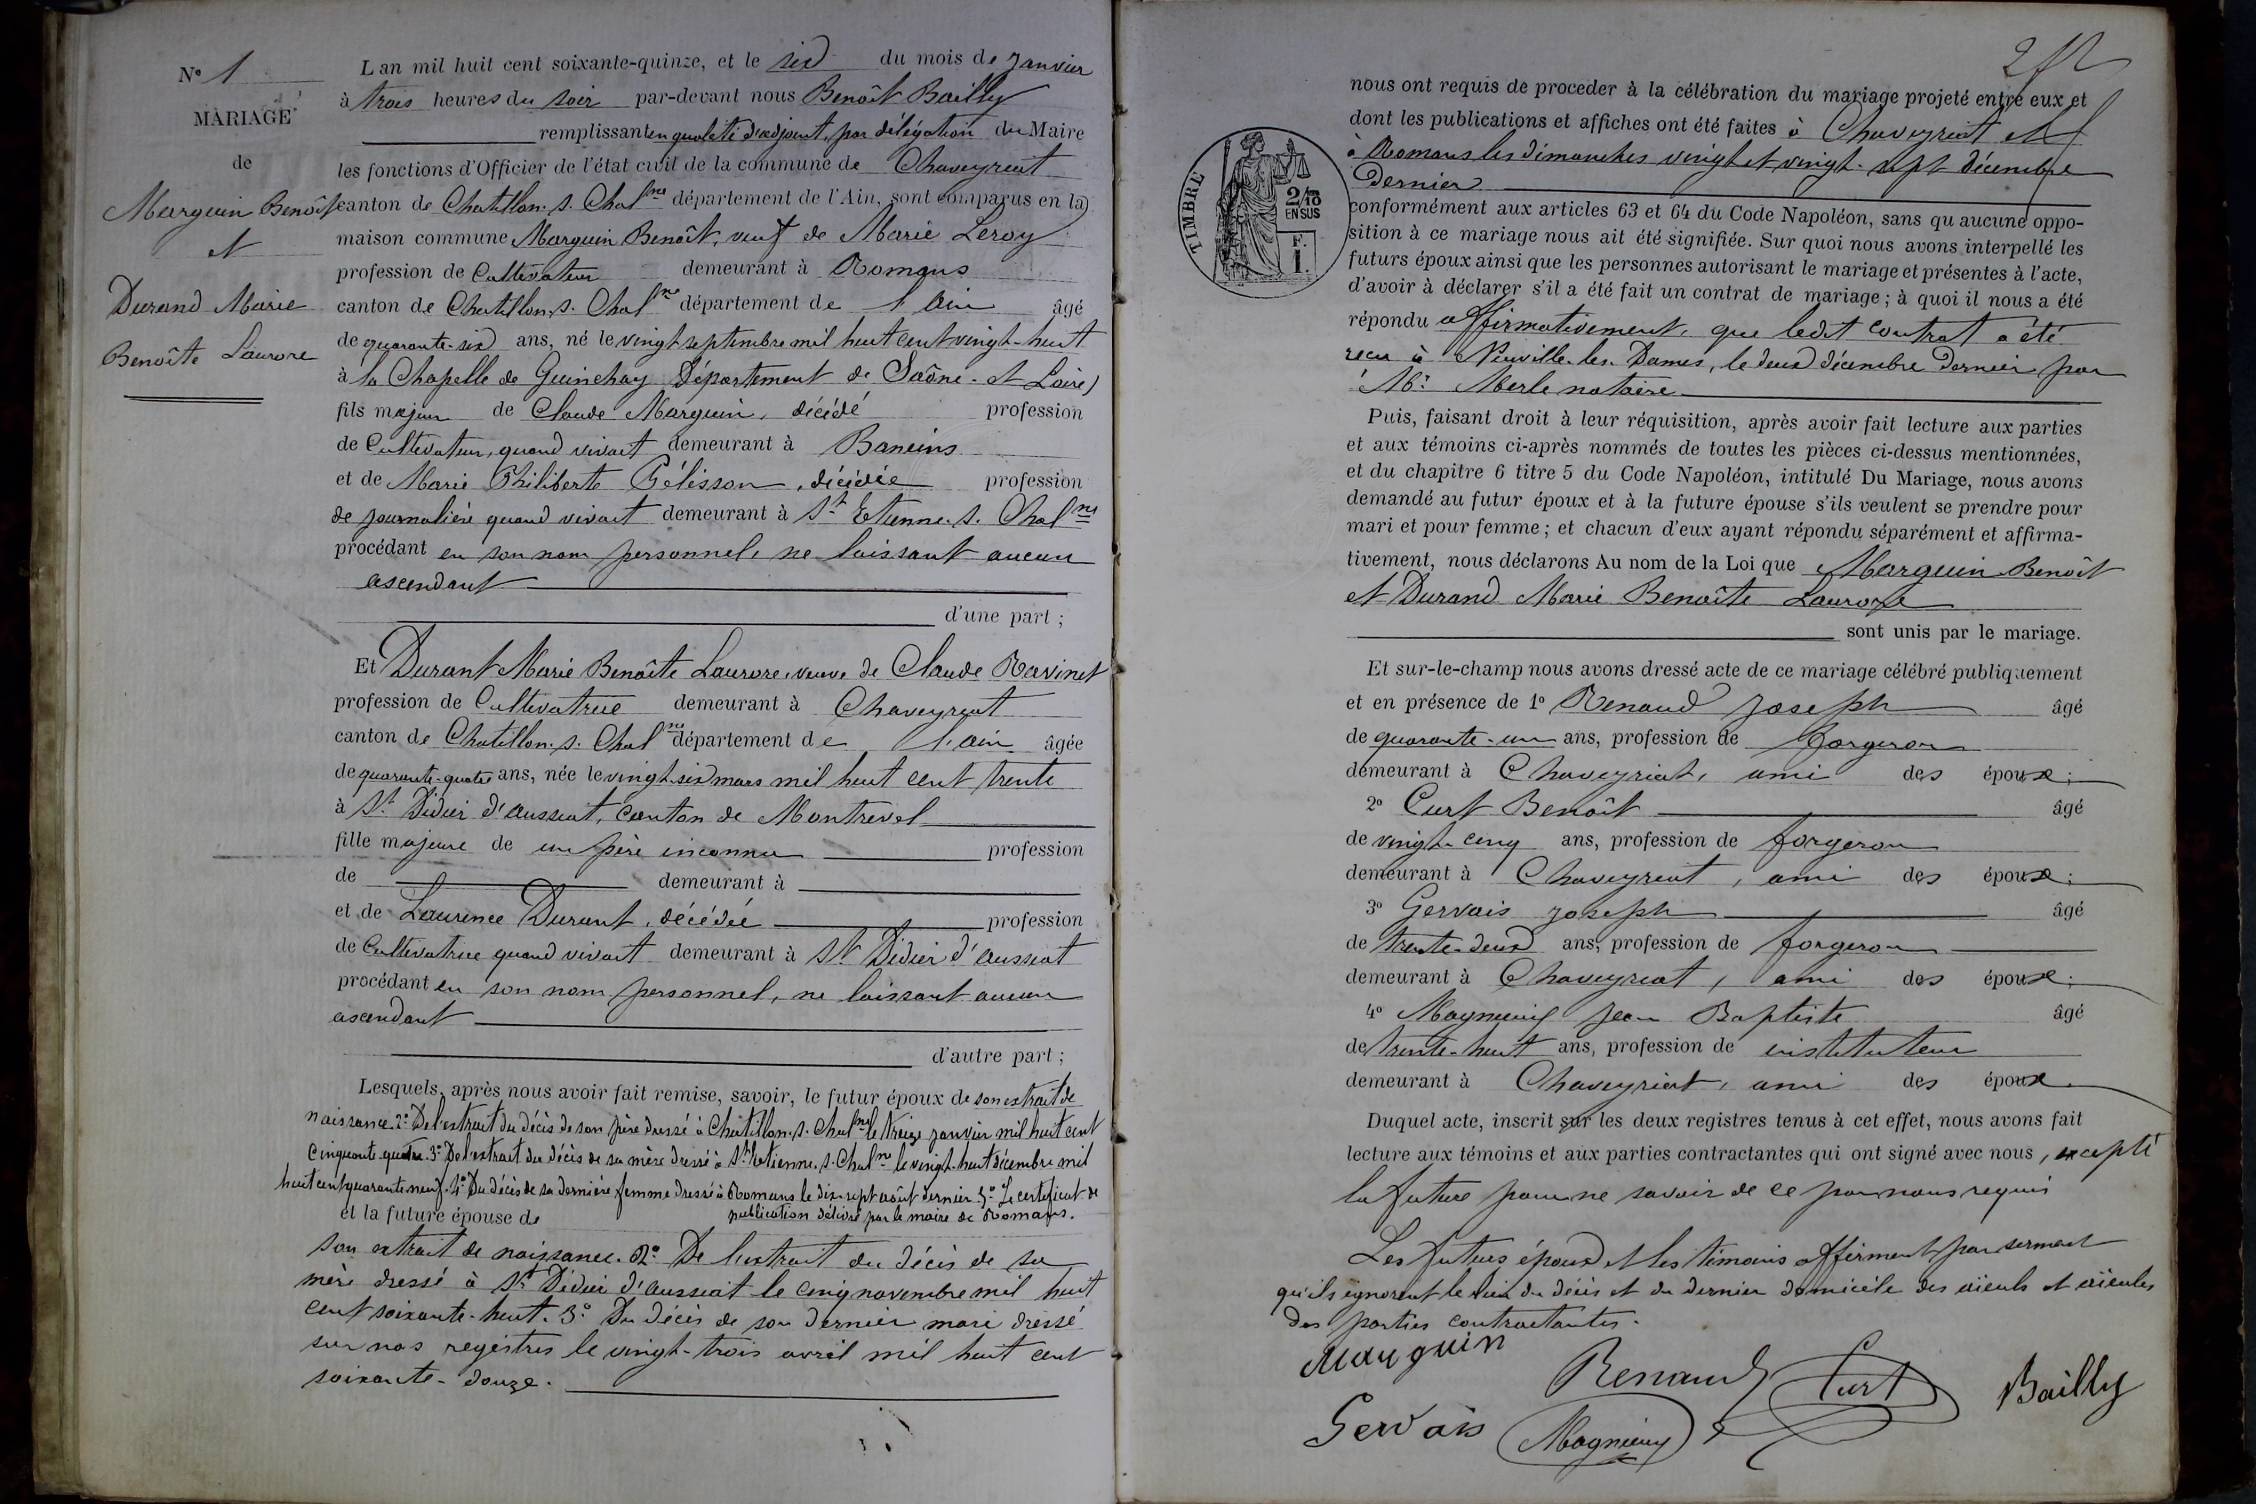 N° 1
MARIAGE
de
Marguin Benoît
et
Durand Marie
Benoîte Laurore
L'an mil huit cent soixante-quinze, et le six du mois de Janvier
à trois heures du soir par-devant nous Benoît Bailly
remplissant en qualité d'adjoint, par délégation du Maire
les fonctions d'Officier de l'état civil de la commune de Chaveyriat
canton de Chatillon. s. Chal.ne département de l'Ain, sont comparus en la
maison commune Marguin Benoît, veuf de Marie Leroy
profession de Cultivateur demeurant à Romans
canton de Chatillon. s. Chal.ne département de l'Ain âgé
de quarante-six ans, né le vingt septembre mil huit cent vingt-huit
à la Chapelle de Guinchay (Département de Saône-et Loire)
fils majeur de Claude Marguin, décédé profession
de Cultivateur, quand vivait demeurant à Baneins
et de Marie Philiberte Gélisson, décédée profession
de journalière quand vivait demeurant à St Etienne. s. Chal.ne
procédant en son nom personnel, ne laissant aucun
ascendant
d'une part ;
Et Durant Marie Benoîte Laurore, veuve de Claude Ravinet
profession de Cultivatrice demeurant à Chaveyriat
canton de Chatillon. s. Chal.ne département de l'ain âgée
de quarante-quatre ans, née le vingt-six mars mil huit cent trente
à St Didier d'aussiat, canton de Montrevel
fille majeure de un père inconnu profession
de demeurant à
et de Laurence Durant, décédée profession
de Cultivatrice quand vivait demeurant à St Didier d'aussiat
procédant en son nom personnel, ne laissant aucun
ascendant
d'autre part ;
Lesquels, après nous avoir fait remise, savoir, le futur époux de son extrait de
naissance. 2° De l'extrait du décès de son père dressé à Chatillon. s. Chal.ne le treize janvier mil huit cent
cinquante-quatre. 3° De l'extrait du décès de sa mère dressé à St Etienne. s. Chal.ne le vingt-huit décembre mil
huit cent quarante neuf. 4° Du décès de sa dernière femme dressé à Romans le dix-sept août dernier 5° Le certificat de
publication délivré par le maire de Romans.
et la future épouse de
son extrait de naissance. 2° De l'extrait du décès de sa
mère dressé à St Didier d'aussiat le cinq novembre mil huit
cent soixante-huit. 3° Du décès de son dernier mari dressé
sur nos registres le vingt-trois avril mil huit cent
soixante-douze.
TIMBRE
2/10
EN SUS
F.
1.
nous ont requis de proceder à la célébration du mariage projeté entre eux et
dont les publications et affiches ont été faites à Chaveyriat et
à Romans les dimanches vingt et vingt-sept décembre
dernier
conformément aux articles 63 et 64 du Code Napoléon, sans qu'aucune oppo-
sition à ce mariage nous ait été signifiée. Sur quoi nous avons interpellé les
futurs époux ainsi que les personnes autorisant le mariage et présentes à l'acte,
d'avoir à déclarer s'il a été fait un contrat de mariage ; à quoi il nous a été
répondu affirmativement, que ledit contrat a été
reçu à Neuville-les-Dames, le deux décembre dernier par
Me Merle notaire
Puis, faisant droit à leur réquisition, après avoir fait lecture aux parties
et aux témoins ci-après nommés de toutes les pièces ci-dessus mentionnées,
et du chapitre 6 titre 5 du Code Napoléon, intitulé Du Mariage, nous avons
demandé au futur époux et à la future épouse s'ils veulent se prendre pour
mari et pour femme ; et chacun d'eux ayant répondu séparément et affirma-
tivement, nous déclarons Au nom de la Loi que Marguin Benoît
et Durand Marie Benoîte Laurore
sont unis par le mariage.
Et sur-le-champ nous avons dressé acte de ce mariage célébré publiquement
et en présence de 1° Renaud Joseph âgé
de quarante-un ans, profession de forgeron
demeurant à Chaveyriat, ami des époux ;
2° Curt Benoît âgé
de vingt-cinq ans, profession de forgeron
demeurant à Chaveyriat, ami des époux ;
3° Gervais Joseph âgé
de trente-deux ans, profession de forgeron
demeurant à Chaveyriat, ami des époux ;
4° Magnieny Jean Baptiste âgé
de trente-huit ans, profession de instituteur
demeurant à Chaveyriat, ami des époux
Duquel acte, inscrit sur les deux registres tenus à cet effet, nous avons fait
lecture aux témoins et aux parties contractantes qui ont signé avec nous, excepté
la future pour ne savoir de ce par nous requis
Les futurs époux et les témoins affirment par serment
qu'ils ignorent le lieu du décès et du dernier domicile des aïeuls et aïeules
des parties contractantes.
Marguin
Renaud
Curt
Bailly
Gervais
Magnieny